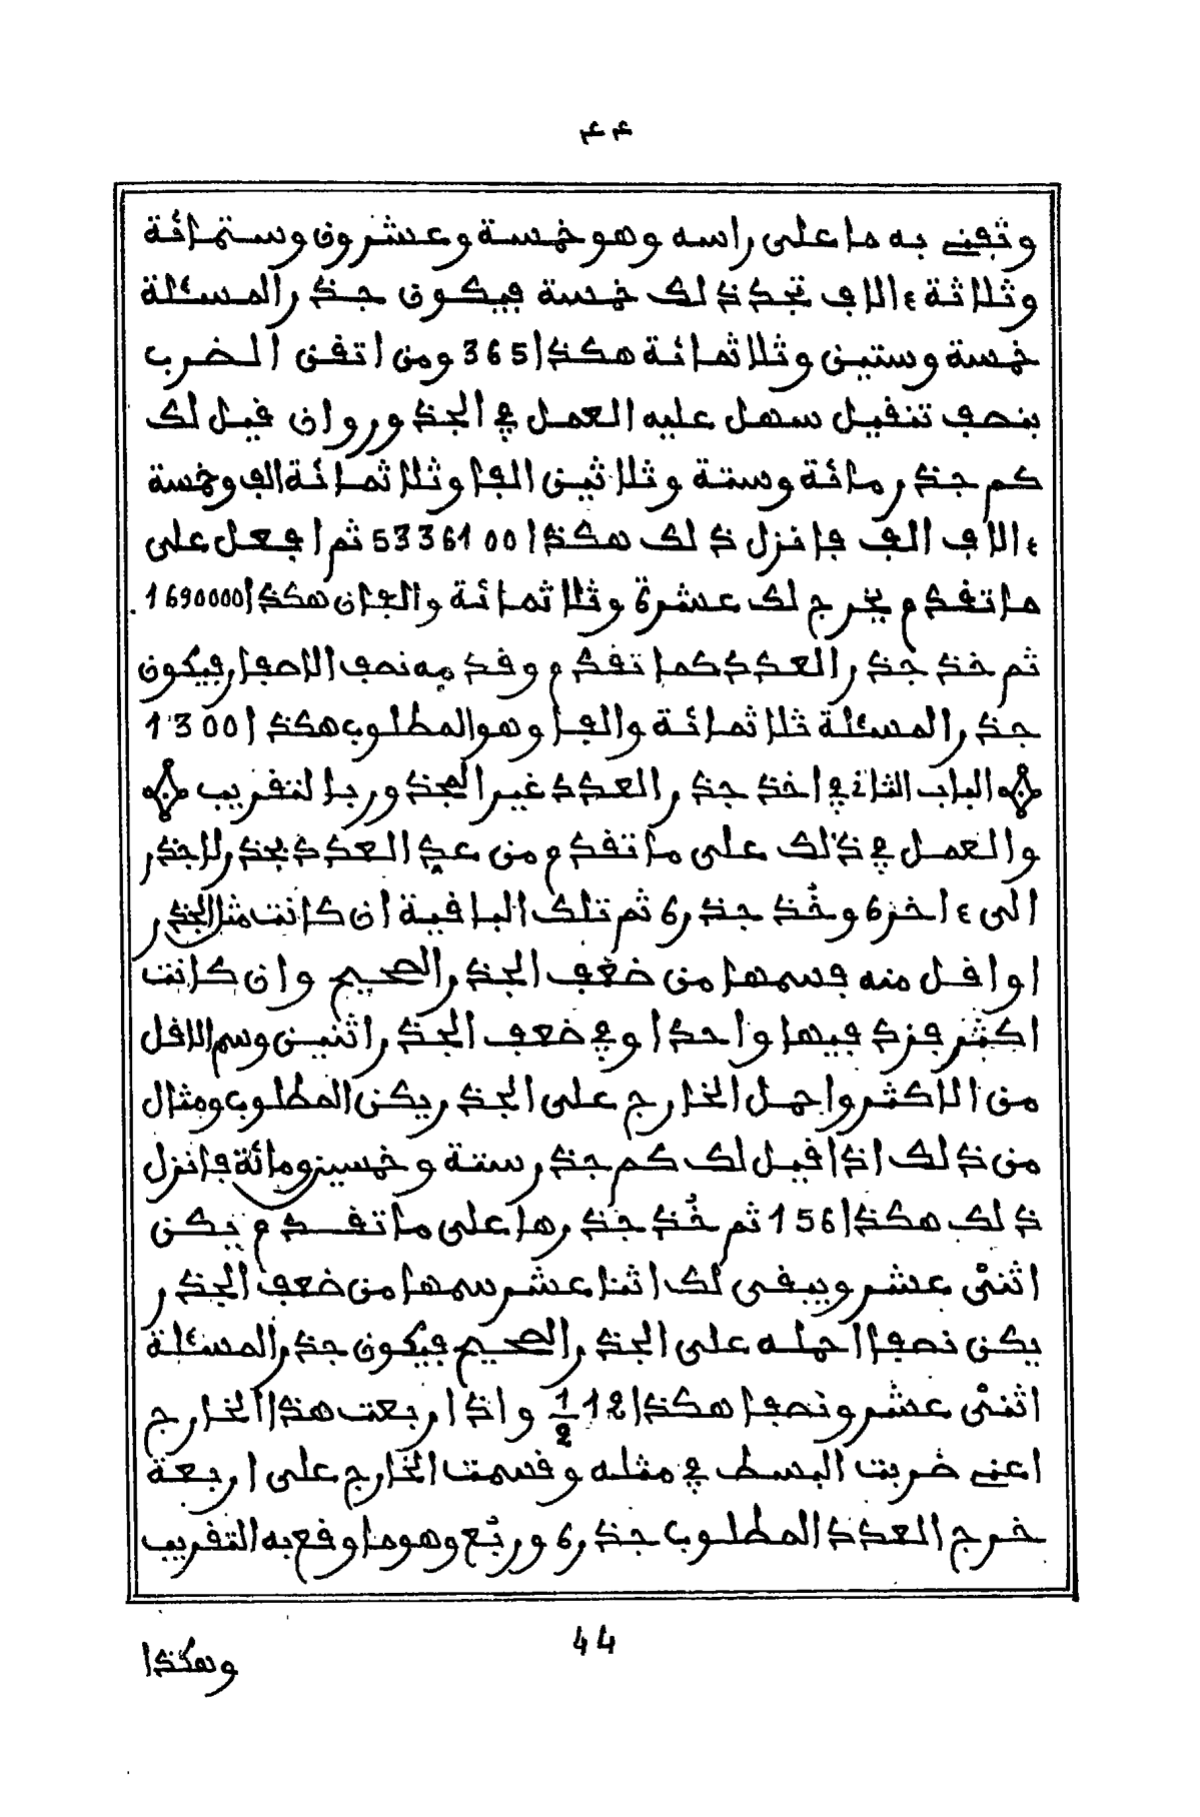 ٤٤
وتفني به ما على راسه وهو خمسة وعشرون وستمائة
وثلاثة ءالاف تجد ذلك خمسة فيكون جذر المسئلة
خمسة وستين وثلاثمائة هكذا 365 ومن اتفن الضرب
بنصف تنقيل سهل عليه العمل في الجذور وان قيل لك
كم جذر مائة وستة وثلاثين الفا وثلاثمائة الف وخمسة
ءالاف الف فانزل ذلك هكذا 5336100 ثم افعل على
ما تقدم يخرج لك عشرة وثلاثمائة والفان هكذا 1690000
ثم خذ جذر العدد كما تقدم وقد مه نصف الاصفار فيكون
جذر المسئلة ثلاثمائة والفا وهو المطلوب هكذا 1300
الباب الثاني في اخذ جذر العدد غير المجذور بالتقريب
والعمل في ذلك على ما تقدم من عد العدد بجذر لا جذر
الى ءاخره وخُذ جذره ثم تلك الباقية ان كانت مثل الجذر
او اقل منه فسمها من ضعف الجذر الصحيح وان كانت
اكثر فزد فيها واحدا وفي ضعف الجذر اثنين وسم الاقل
من الاكثر واحمل الخارج على الجذر يكن المطلوب ومثال
من ذلك اذا قيل لك كم جذر ستة وخمسين ومائة فانزل
ذلك هكذا 156 ثم خُذ جذرها على ما تقدم يكن
اثنىْ عشر ويبقى لك اثنا عشر سمها من ضعف الجذر
يكن نصفا احمله على الجذر الصحيح فيكون جذر المسئلة
اثنىْ عشر ونصفا هكذا 12 1/2 واذا ربعت هذا الخارج
اعني ضربت البسط في مثله وقسمت الخارج على اربعة
خرج العدد المطلوب جذره وربُع وهو ما وقع به التقريب
44
وهكذا